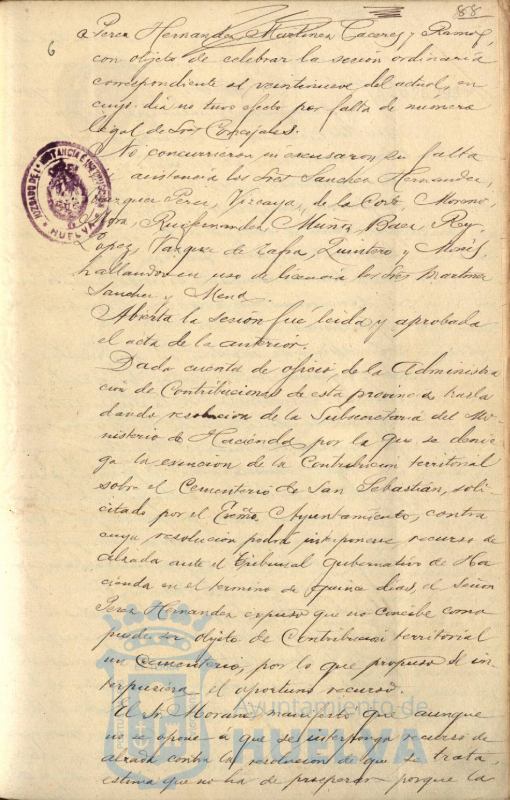 88
6
a Perez Hernandez, Martinez Caceres y Ramos,
con objeto de celebrar la sesion ordinaria
correspondiente al veintinueve del actual, en
cuyo dia no tuvo efecto por falta de numero
legal de Sres Concejales.
No concurrieron ni excusaron su falta
de asistencia los Sres Sanchez Hernandez,
Vazquez Perez, Vizcaya, de la Corte, Moreno
Mora, Ruifernandez, Muñiz, Baea, Rey
Lopez, Vazquez de Zafra, Quintero y
hallandose en uso de licencia los Sres Martinez
Sanchez y Mena.
Abierta la sesión fué leida y aprobada
el acta de la anterior.
Dada cuenta de oficio de la Administra
ción de Contribuciones de esta provincia trasla
dando resolucion de la Subsecretaría del Mi-
nisterio de Hacienda por la que se denie-
ga la exencion de la Contribucion territorial
sobre el Cementerio de San Sebastián, soli-
citada por el Excmo. Ayuntamiento, contra
cuya resolución podrá interponerse recurso de
alzada ante el Tribunal gubernativo de Ha-
cienda en el termino de quince dias, el señor
Perez Hernandez expuso que no concibe como
puede ser objeto de Contribucion territorial
un Cementerio, por lo que propuso se in-
terpusiera el oportuno recurso.
El Sr. Morano manifestó que aunque
no se opone a que se interponga recurso de
alzada contra la resolucion de que se trata,
estima que no ha de prosperar porque la
JUZGADO DE 1ª INSTANCIA E INSTRUCCION
* HUELVA *
Ayuntamiento de
HUELVA